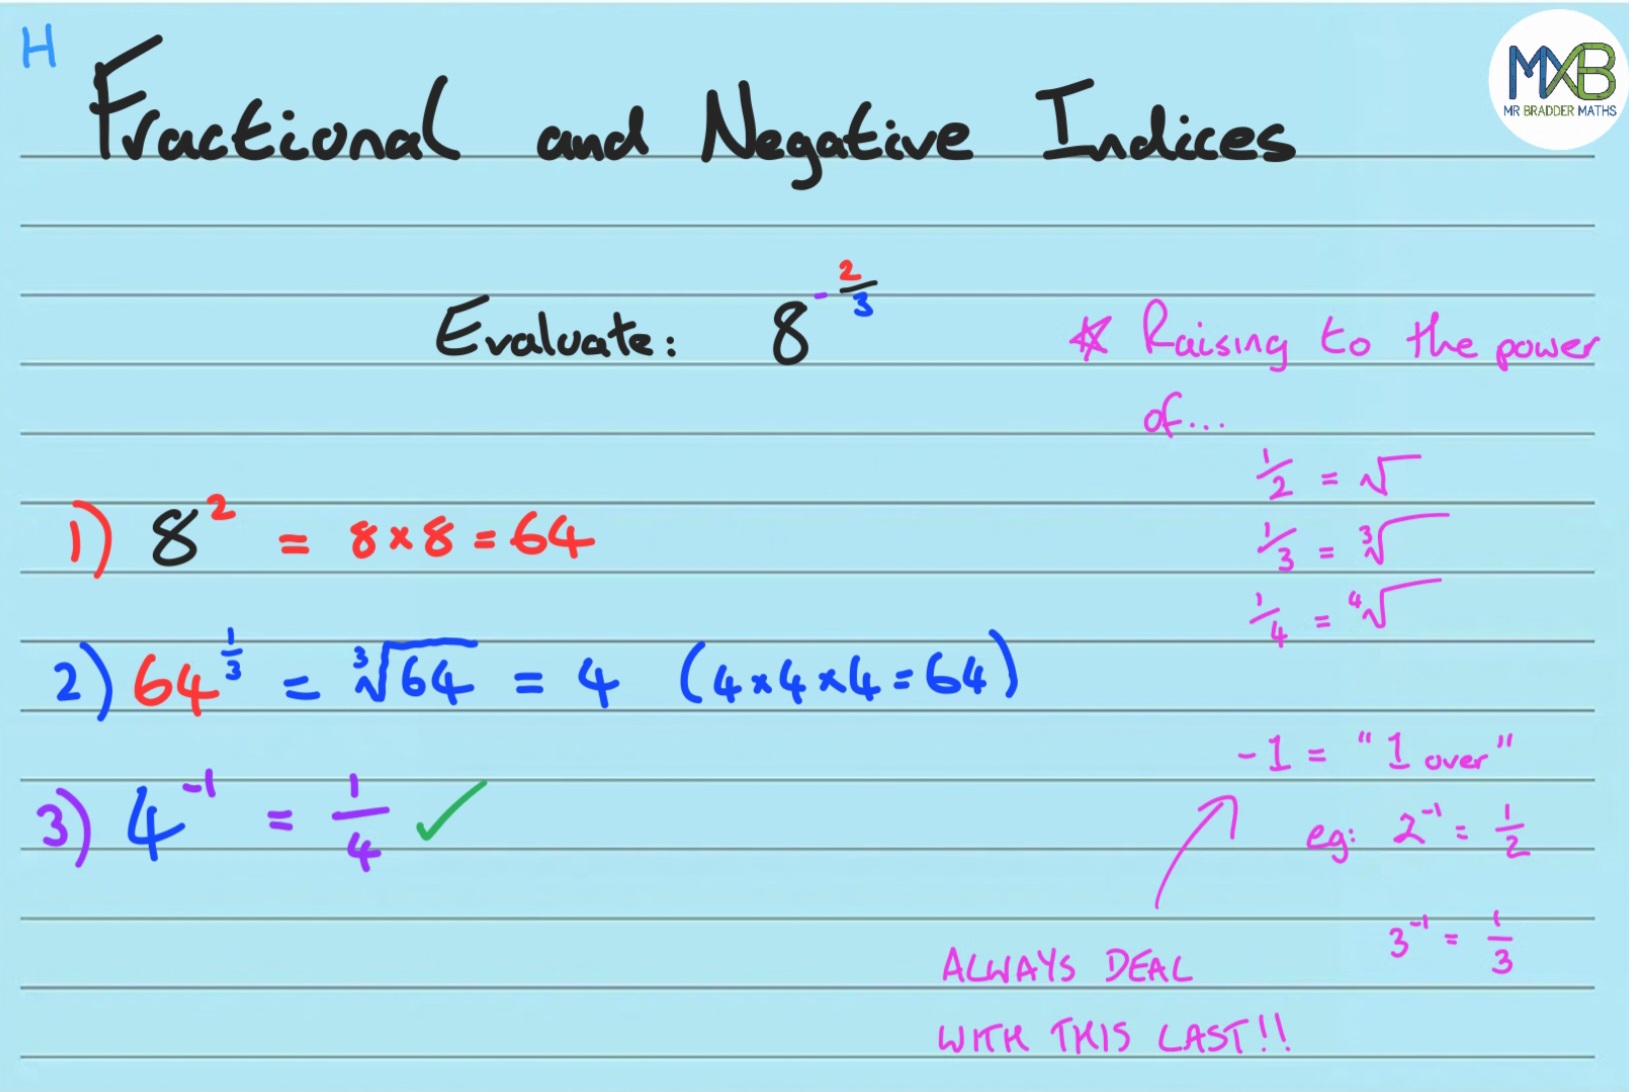 H
Fractional and Negative Indices
MXB
MR BRADDER MATHS
Evaluate: 8^(-2/3)
* Raising to the power
of...
1/2 = √
1/3 = ³√
1/4 = ⁴√
1) 8² = 8×8 = 64
2) 64^(1/3) = ³√64 = 4 (4×4×4=64)
3) 4⁻¹ = 1/4 ✓
-1 = "1 over"
eg: 2⁻¹ = 1/2
3⁻¹ = 1/3
ALWAYS DEAL
WITH THIS LAST!!